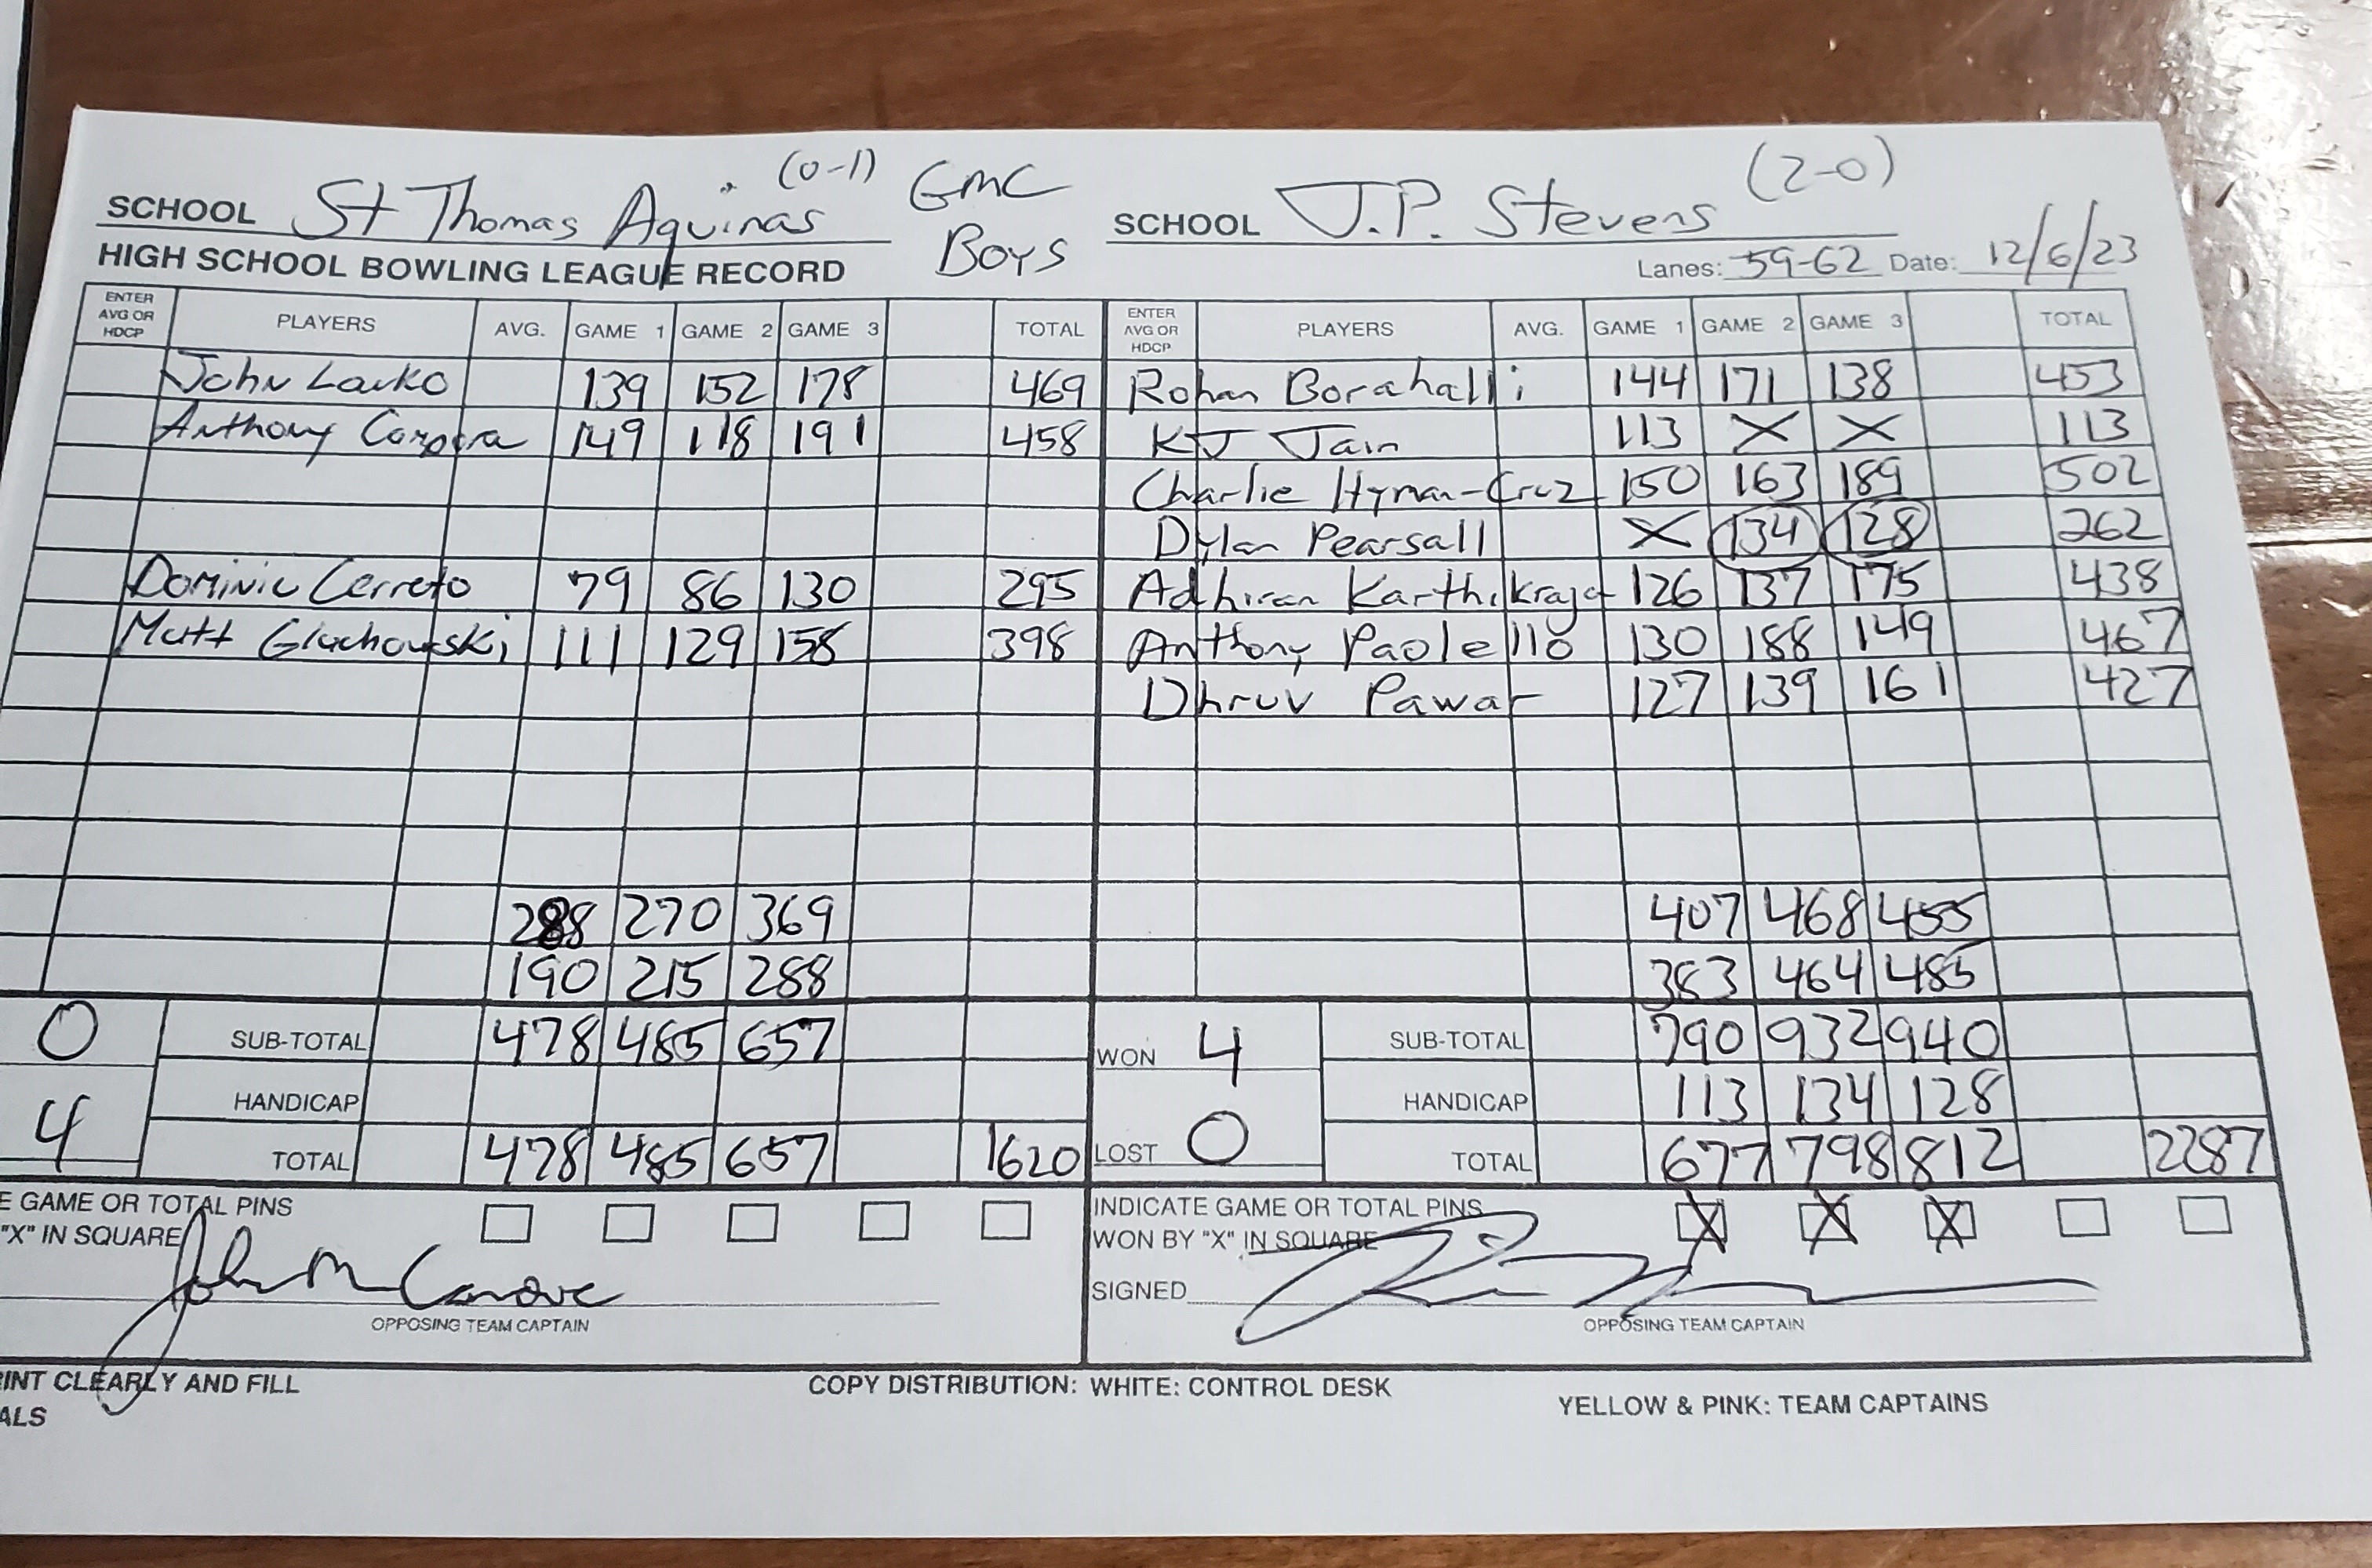 (0-1) GMC (2-0)
SCHOOL St Thomas Aquinas Boys SCHOOL J.P. Stevens
HIGH SCHOOL BOWLING LEAGUE RECORD Lanes: 59-62 Date: 12/6/23
ENTER AVG OR HDCP PLAYERS AVG. GAME 1 GAME 2 GAME 3 TOTAL ENTER AVG OR HDCP PLAYERS AVG. GAME 1 GAME 2 GAME 3 TOTAL
John Lavko 139 152 178 469 Rohan Borahalli 144 171 138 453
Anthony 149 118 191 458 KJ Jain 113 X X 113
Charlie Hyman-Cruz 150 163 189 502
Dylan Pearsall X 134 128 262
Dominic Cerreto 79 86 130 295 Adhiran Karthikraja 126 137 175 438
Matt Gluchowski 111 129 158 398 Anthony Paolello 130 188 149 467
Dhruv Pawar 127 139 161 427
288 270 369 407 468 455
190 215 288 383 464 485
0 SUB-TOTAL 478 485 657 WON 4 SUB-TOTAL 790 932 940
HANDICAP HANDICAP 113 134 128
4 TOTAL 478 485 657 1620 LOST 0 TOTAL 677 798 812 2287
E GAME OR TOTAL PINS INDICATE GAME OR TOTAL PINS
"X" IN SQUARE WON BY "X" IN SQUARE X X X
John M SIGNED
OPPOSING TEAM CAPTAIN OPPOSING TEAM CAPTAIN
INT CLEARLY AND FILL COPY DISTRIBUTION: WHITE: CONTROL DESK YELLOW & PINK: TEAM CAPTAINS
ALS